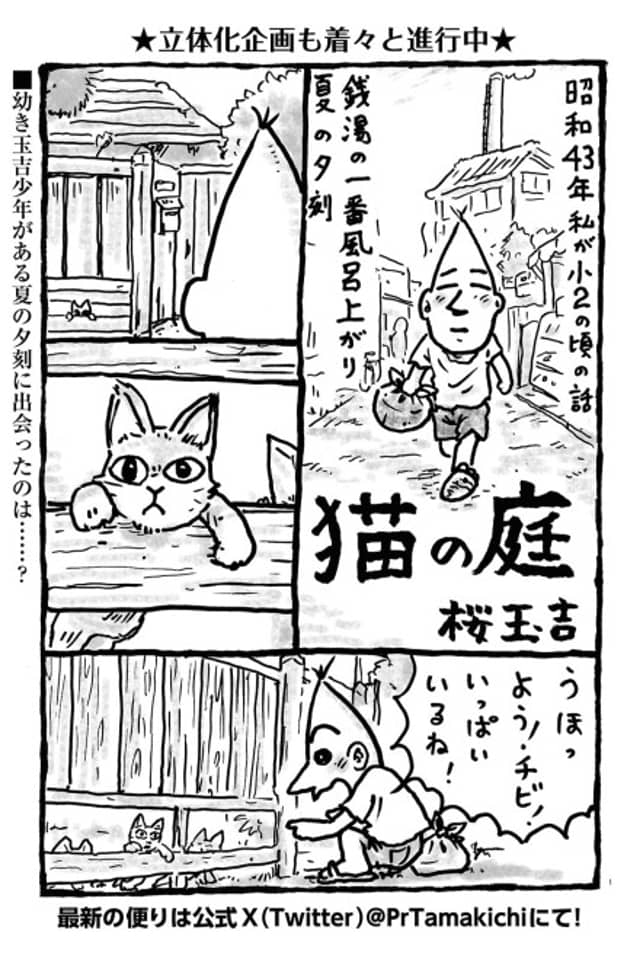 ★立体化企画も着々と進行中★
昭和43年 私が小2の頃の話
銭湯の一番風呂上がり
夏の夕刻
猫の庭
桜玉吉
■幼き玉吉少年がある夏の夕刻に出会ったのは……?
うほっ
よう!チビ!
いっぱい
いるね!
最新の便りは公式X(Twitter)@PrTamakichiにて!